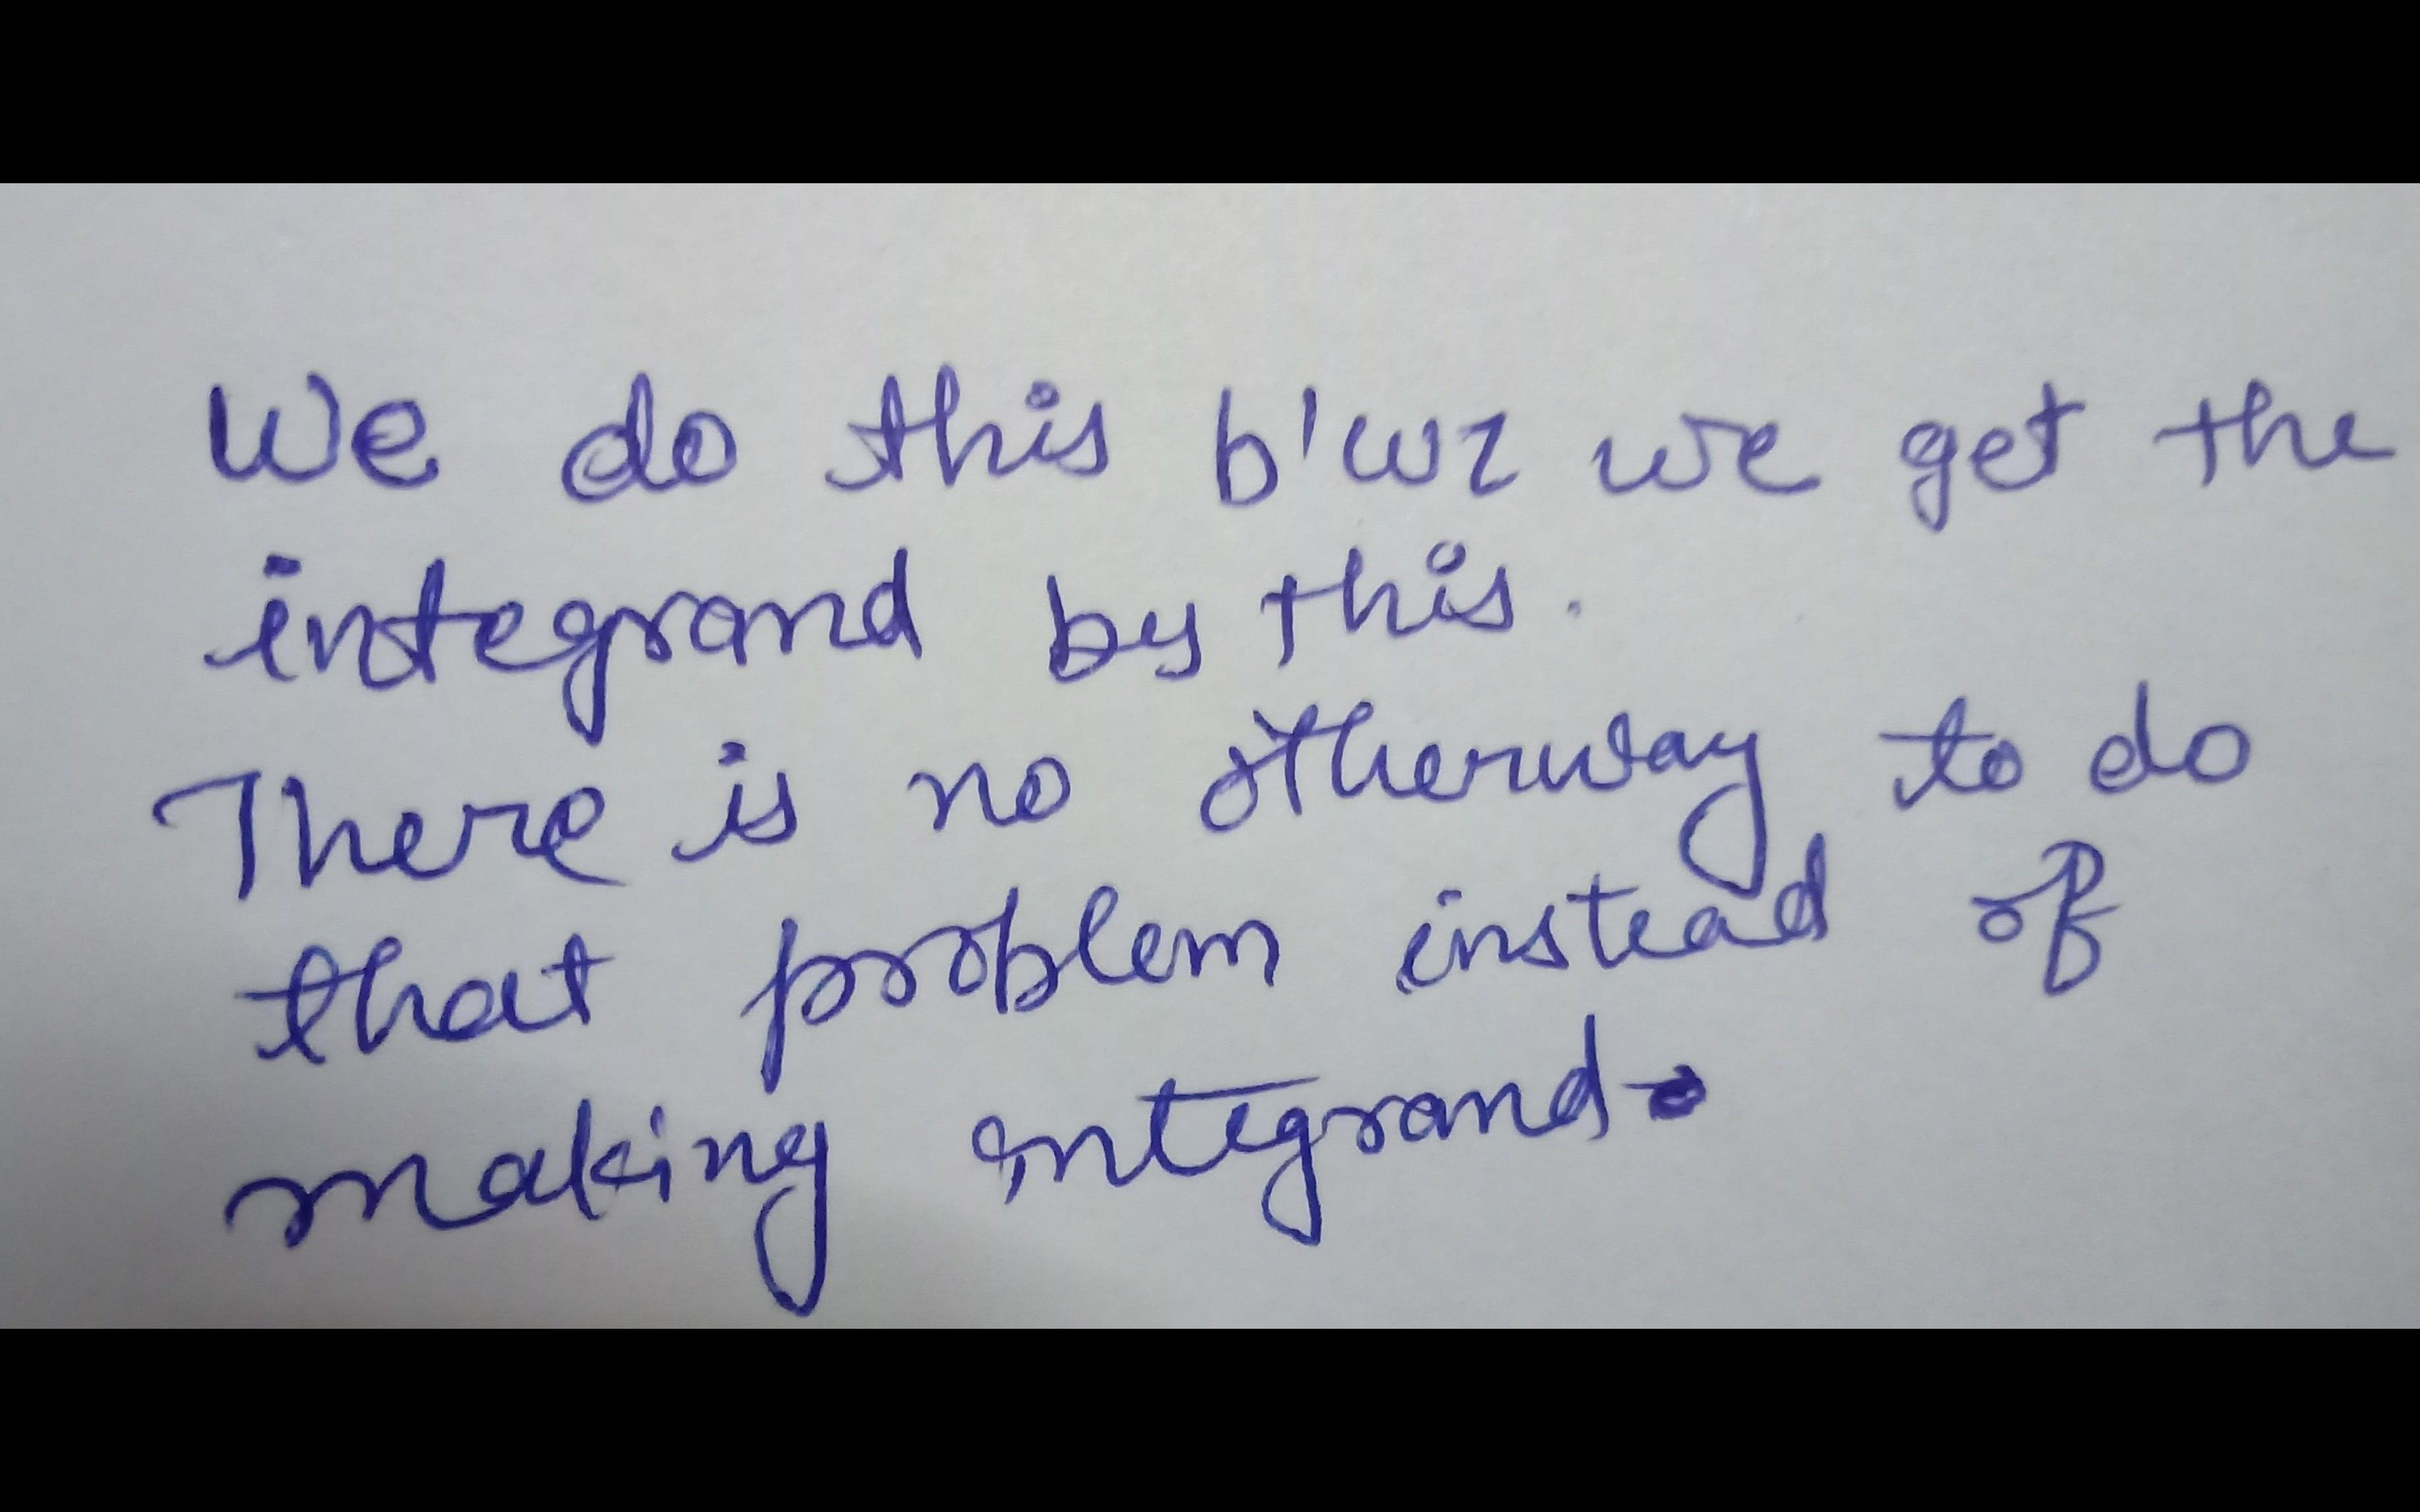 We do this b'wz we get the
integrand by this.
There is no otherway to do
that problem instead of
making integrand.